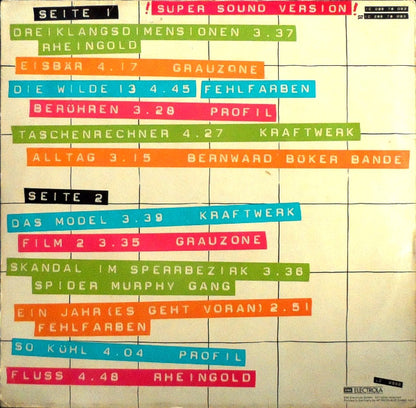 SEITE 1
! SUPER SOUND VERSION !
DREIKLANGSDIMENSIONEN 3.37
RHEINGOLD
EISBÄR 4.17 GRAUZONE
DIE WILDE 13 4.45 FEHLFARBEN
BERÜHREN 3.28 PROFIL
TASCHENRECHNER 4.27 KRAFTWERK
ALLTAG 3.15 BERNWARD BÜKER BANDE
SEITE 2
DAS MODEL 3.39 KRAFTWERK
FILM 2 3.35 GRAUZONE
SKANDAL IM SPERRBEZIRK 3.36
SPIDER MURPHY GANG
EIN JAHR (ES GEHT VORAN) 2.51
FEHLFARBEN
SO KÜHL 4.04 PROFIL
FLUSS 4.48 RHEINGOLD
EMI ELECTROLA